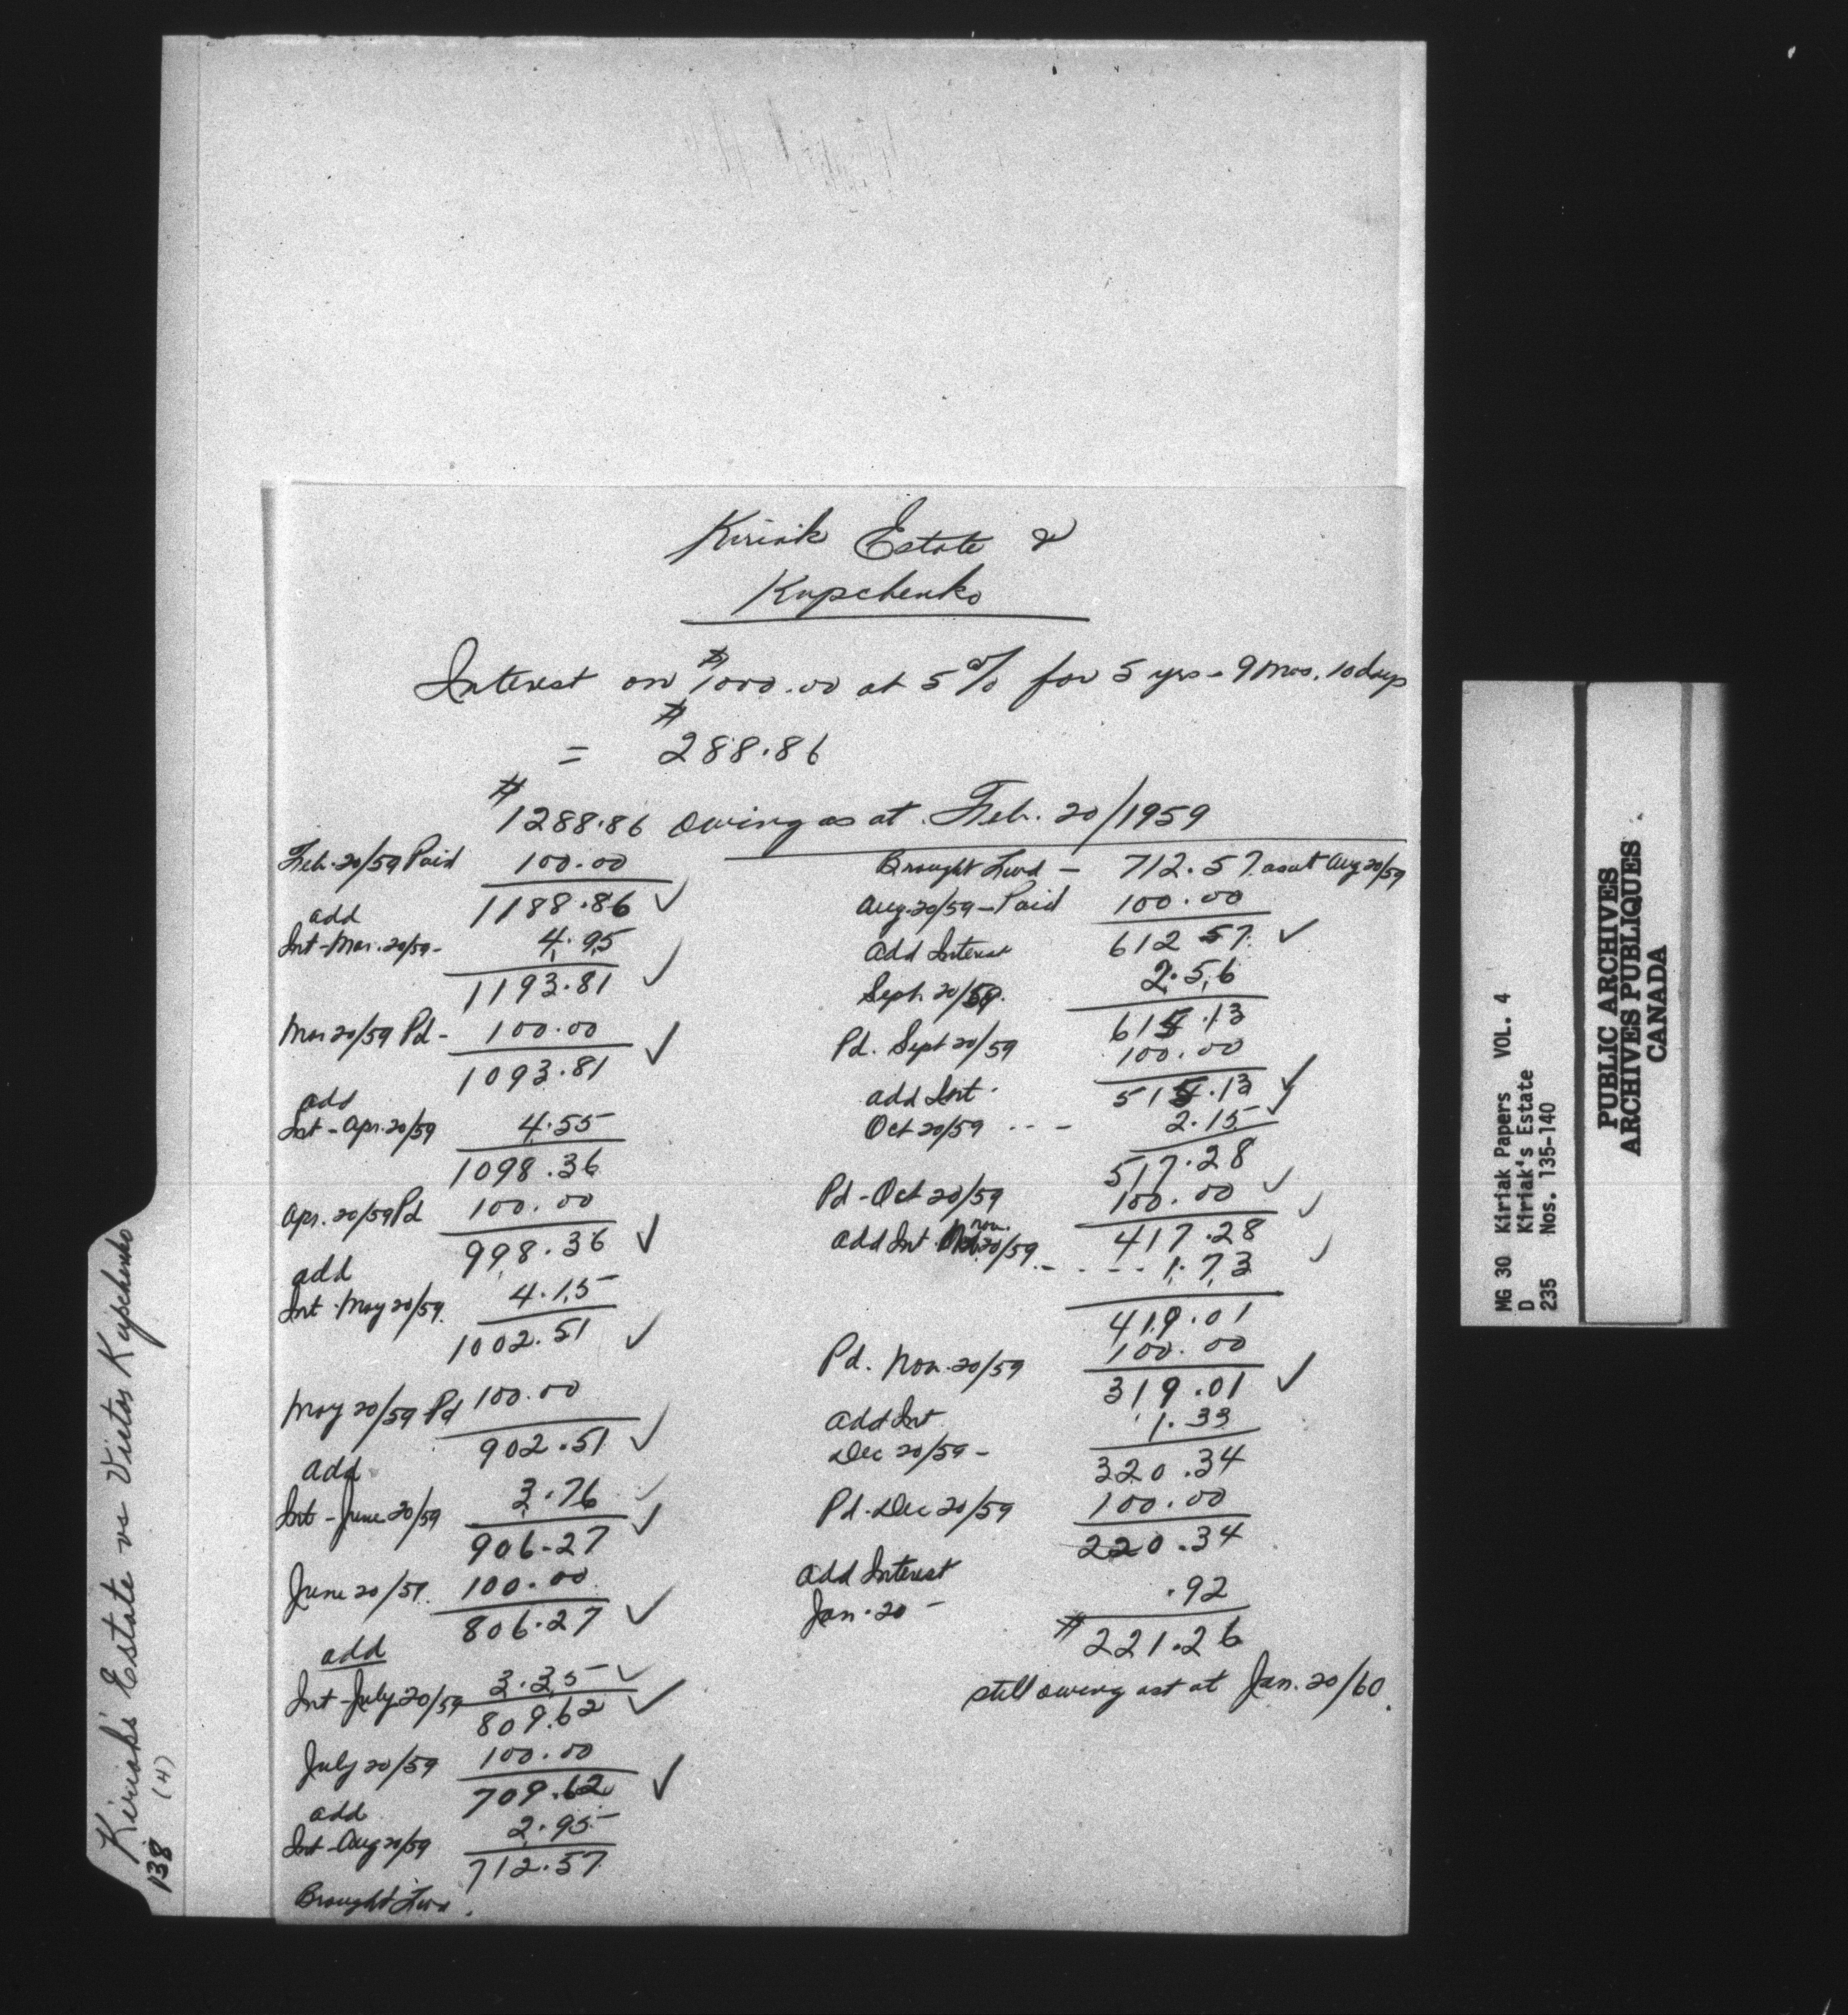 Kiriak Estate &
Kupchenko
Interest on $1000.00 at 5% for 5 yrs - 9 mos. 10 days
= $288.86
$1288.86 owing as at Feb. 20/1959
Feb. 20/59 Paid 100.00
1188.86 ✓
add
Int - Mar. 20/59 - 4.95
1193.81 ✓
Mar 20/59 Pd - 100.00
1093.81 ✓
add
Int - Apr. 20/59 4.55
1098.36
Apr. 20/59 Pd 100.00
998.36 ✓
add
Int - May 20/59. 4.15
1002.51 ✓
May 20/59 Pd 100.00
902.51 ✓
add
Int - June 20/59 3.76 ✓
906.27 ✓
June 20/59. 100.00
806.27 ✓
add
Int - July 20/59 3.35 ✓
809.62 ✓
July 20/59 100.00
709.62 ✓
add
Int - Aug 20/59 2.95
712.57
Brought Fwd.
Brought Fwd - 712.57 as at Aug 20/59
Aug. 20/59 - Paid 100.00
612 57 ✓
Add Interest
Sept. 20/59. 2.56
615.13
Pd. Sept 20/59 100.00
515.13 ✓
add Int.
Oct 20/59 - - - 2.15 ✓
517.28
Pd - Oct 20/59 100.00 ✓
417.28 ✓
Add Int Nov. 20/59 - - - - 1.73 ✓
419.01
Pd. Nov. 20/59 100.00
319.01 ✓
Add Int
Dec 20/59 - 1.33
320.34
Pd. Dec 20/59 100.00
220.34
Add Interest
Jan. 20 - .92
$221.26
still owing ast at Jan. 20/60.
Kiriak's Estate vs Victor Kupchenko
138 (4)
MG 30 Kiriak Papers VOL. 4
D Kiriak's Estate
235 Nos. 135-140
PUBLIC ARCHIVES
ARCHIVES PUBLIQUES
CANADA